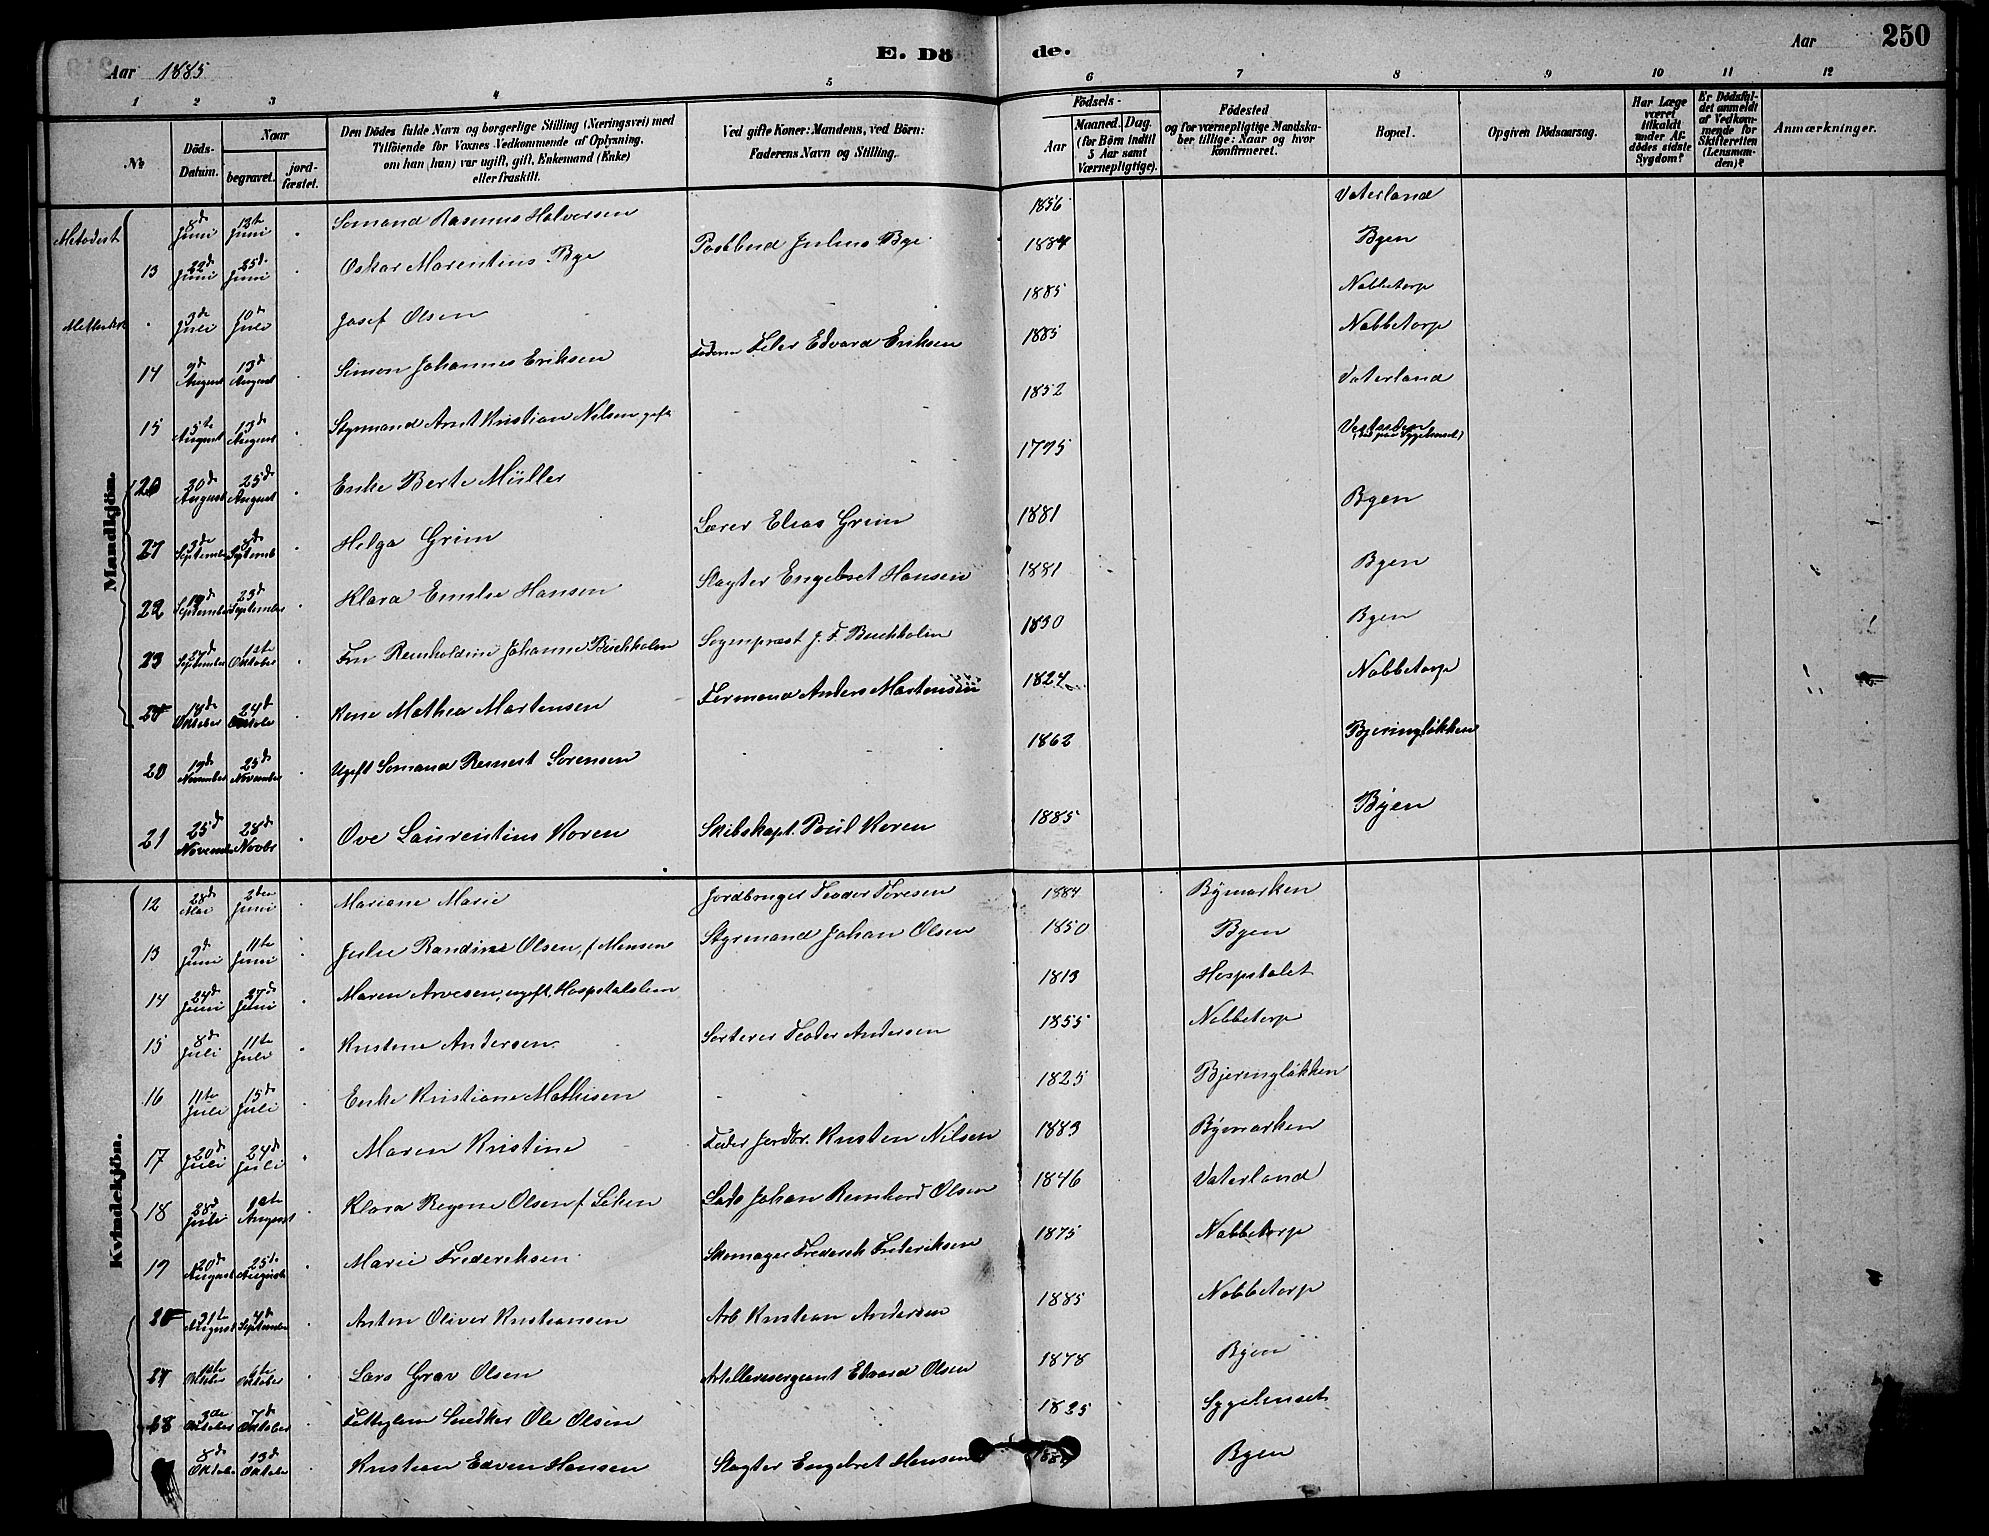 Aar 1885
E. Dö
de.
Aar
250
1 2 3 4 5 6 7 8 9 10 11 12
No
Döds-
Datum.
Naar
begravet.
jord-
fæstet.
Den Dödes fulde Navn og borgerlige Stilling (Næringsvei) med
Tilföiende for Voxnes Vedkommende af Oplysning,
om han (hun) var ugift, gift, Enkemand (Enke)
eller fraskilt.
Ved gifte Koner: Mandens, ved Börn:
Faderens Navn og Stilling.
Födsels-
Aar
Maaned. Dag.
(for Børn indtil
5 Aar samt
Værnepligtige).
Födested
og for værnepligtige Mandska-
ber tillige: Naar og hvor
konfirmeret.
Bopæl.
Opgiven Dödsaarsag.
Har Læge
været
tilkaldt
under Af-
dödes sidste
Sygdom?
Er Dødsfal-
det anmeldt
af Vedkom-
mende for
Skifteretten
(Lensman-
den)?
Anmærkninger.
Mandkjön.
Metodist Juni 13te Juni Sömand Rasmus Halvorsen 1856 Vaterland
13 22d Juni 25d Juni Oskar Marentius Bye Postbud Julius Bye 1884 Byen
3d Juli 10d Juli Josef Olsen 1885 Nabbetorp
14 9d August 13d August Simon Johannes Eriksen Feler Edvard Eriksen 1885 Nabbetorp
15 5te August 13d August Styrmand Arnt Kristian Nilsen gift 1852 Vaterland
20 20d August 25d August Enke Berte Müller 1775
27 3de September 8d September Helga Grim Lærer Elias Grim 1881 Byen
22 19d September 23d September Klara Emilie Hansen Slagter Engebret Hansen 1881 Byen
23 27d September Oktober Fru Reinholdine Johanne Buchholm Sogneprest J. F. Buchholm 1830 Byen
18d Oktober 24d Kone Mathea Martensen Formand Anders Martensen 1824 Nabbetorp
20 19d November 25d November Ugift Sömand Reinert Sörensen 1862 Bjeringløkken
21 25d November 28d Novbr Ove Laurentius Koren Skibskapt. Poul Koren 1885 Byen
Kvindekjön.
12 28d Mai 2den Juni Mariane Marie Jordbruger Teodor Toresen 1884 Bymarken
13 9d Juni 11te Juni Julie Randine Olsen f. Monsen Styrmand Johan Olsen 1850 Byen
14 24d Juni 27d Juni Maren Arvesen, ugift, Hospitalslem 1813 Hospitalet
15 8d Juli 11te Juli Kristine Andersen Sorterer Teodor Andersen 1855 Nabbetorp
16 11te Juli 15d Juli Enke Kristiane Mathisen 1825 Bjeringløkken
17 20d Juli 24d Juli Maren Kristine Kristen Nilsen 1883 Bymarken
18 28d Juli 1ste August Klara Regine Olsen f. Johan Bernhard Olsen 1846 Vaterland
19 20d August 25d August Marie Frederiksen Skomager Frederik Frederiksen 1875 Nabbetorp
31te August 4d September Anton Oliver Kristiansen Arb Kristian Andersen 1885 Nabbetorp
Oktober 6te Oktober Lars Grav Olsen Artellerisergeant Edvard Olsen 1878 Byen
18 3de Oktober 7d Oktober Fattiglem Snedker Ole Olsen 1825 Sygehuset
8d Oktober 13d Oktober Kristian Edvin Hansen Slagter Engebret Hansen Byen